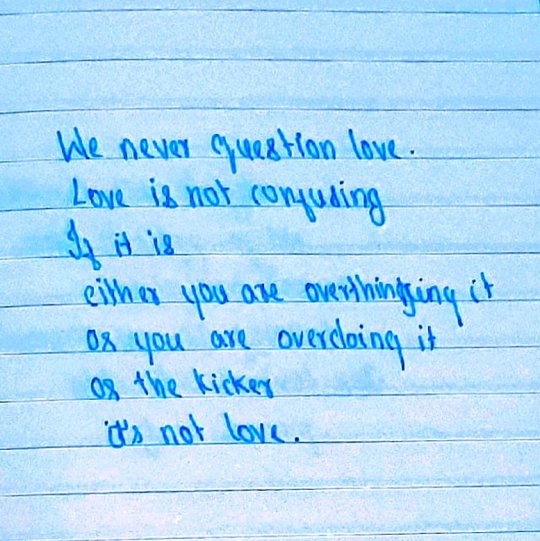 We never question love.
Love is not confusing
If it is
either you are overthinking it
or you are overdoing it
or the kicker
it's not love.